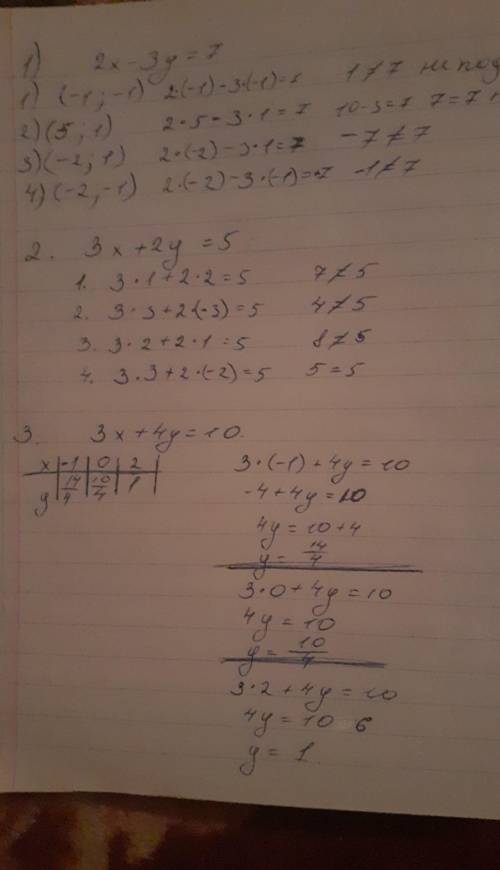 1) 2x-3y=7
1) (-1; -1) 2·(-1)-3·(-1)= 1≠7 не под
2) (5; 1) 2·5-3·1=7 10-3=7 7=7
3) (-2; 1) 2·(-2)-3·1=7 -7≠7
4) (-2; -1) 2·(-2)-3·(-1)=7 -1≠7
2. 3x+2y=5
1. 3·1+2·2=5 7≠5
2. 3·3+2·(-3)=5 4≠5
3. 3·2+2·1=5 8≠5
4. 3·3+2·(-2)=5 5=5
3. 3x+4y=10
x | -1 | 0 | 2
y | 14/4 | 10/4 | 1
3·(-1)+4y=10
-4+4y=10
4y=10+4
y=14/4
3·0+4y=10
4y=10
y=10/4
3·2+4y=10
4y=10 6
y=1